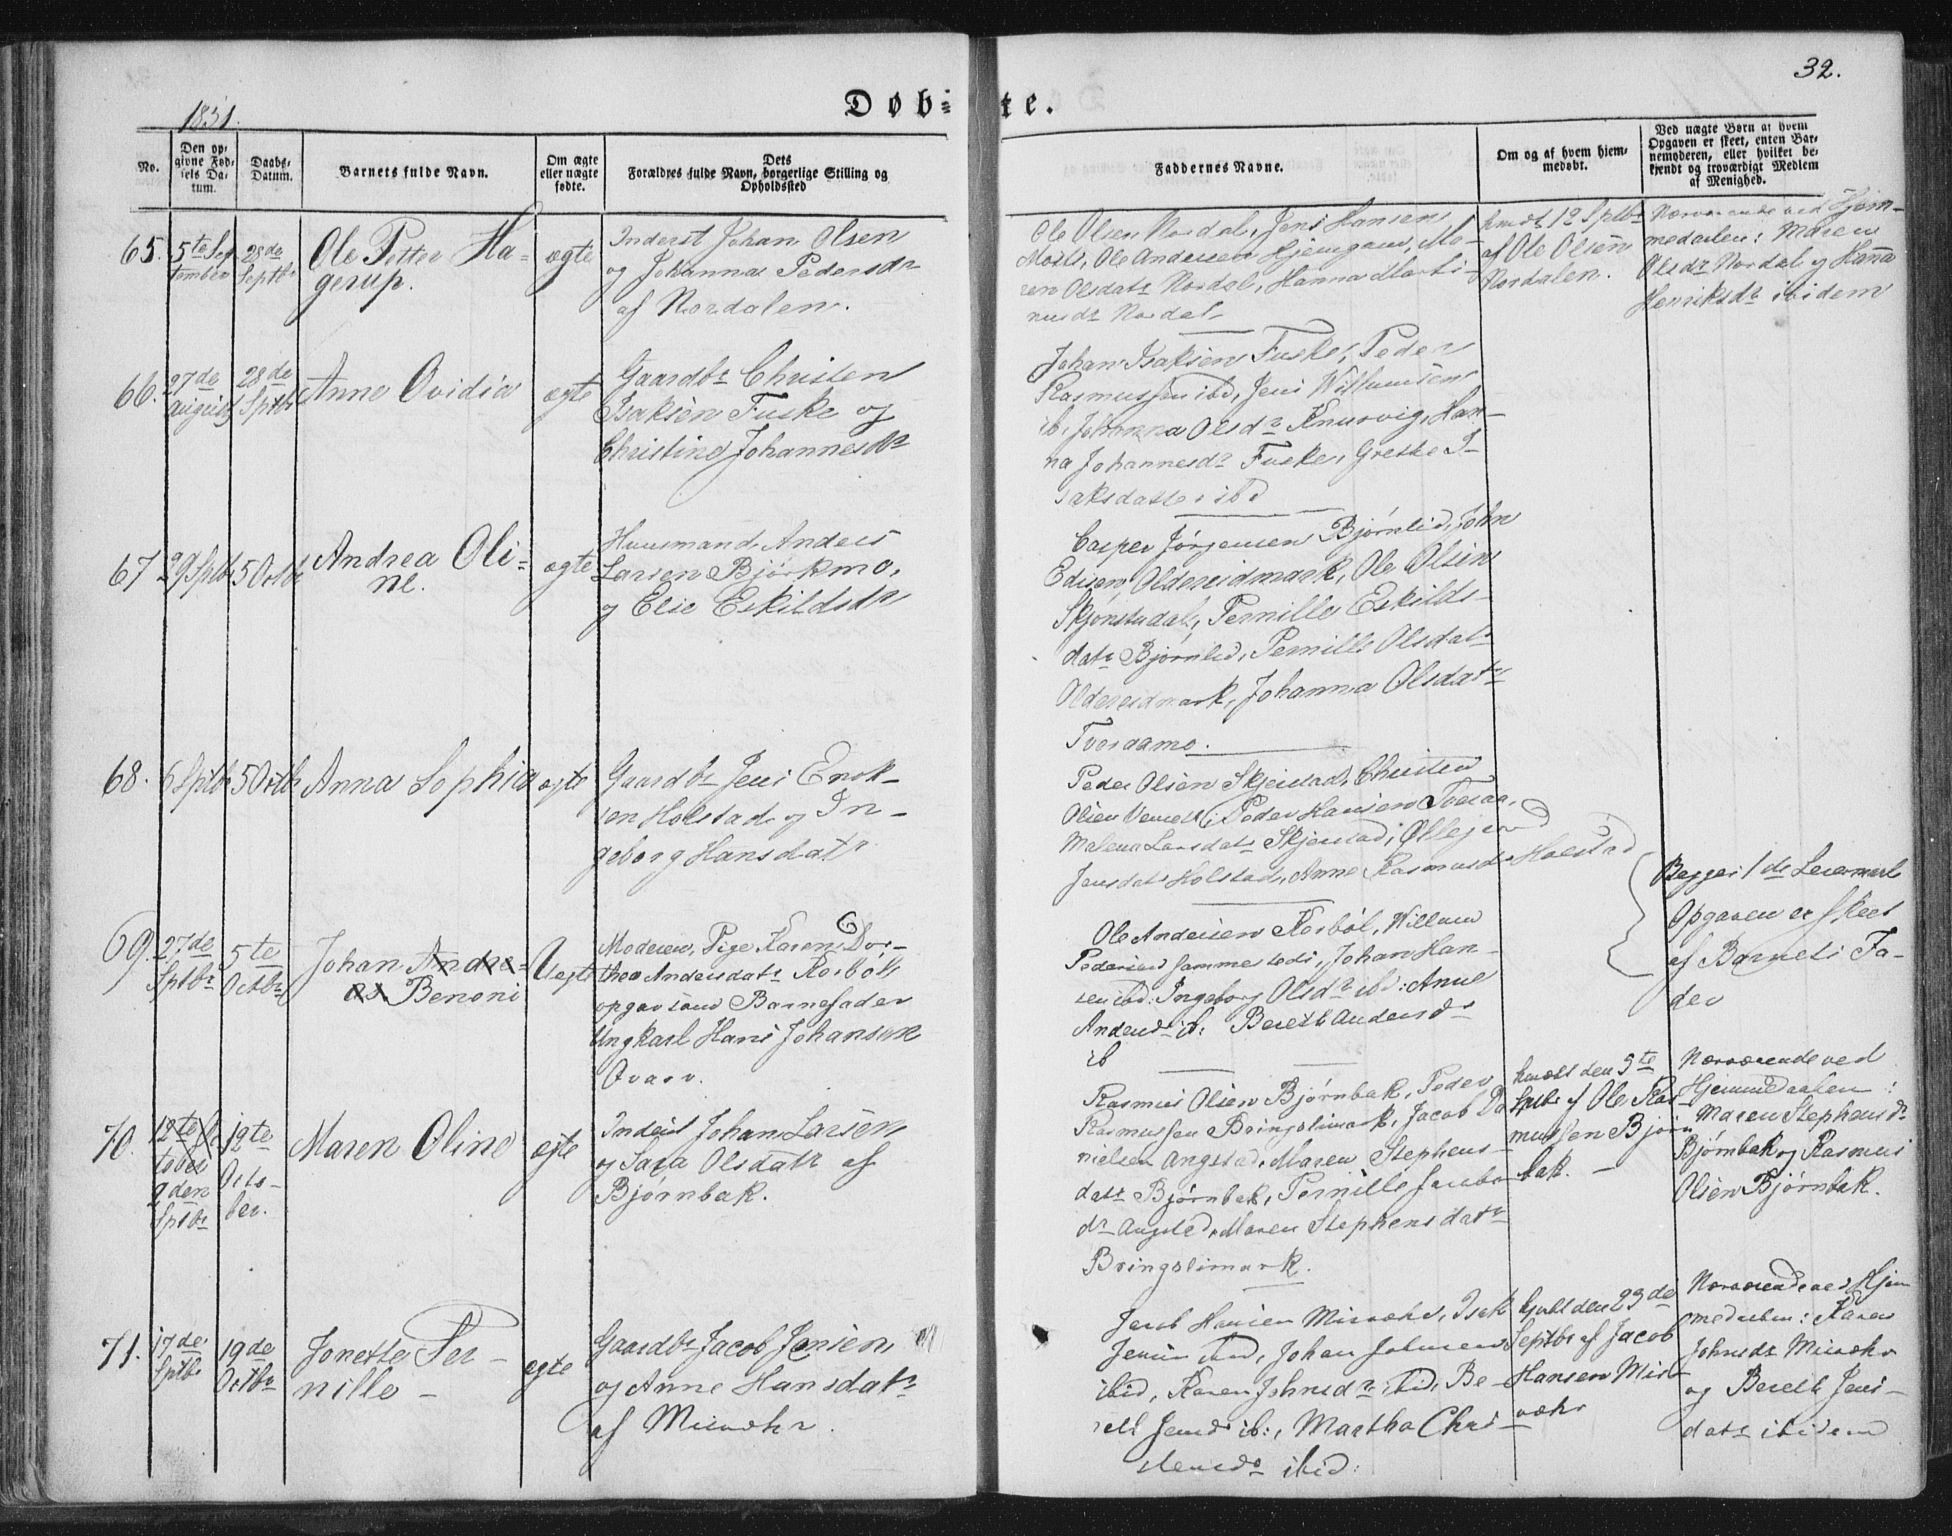 32.
1831.
Døb=
te.
No.
Den op-
givne Fød-
sels Da-
tum.
Daabs-
Datum.
Barnets fulde Navn.
Om ægte
eller uægte
fødte.
Dets
Forældres fulde Navn, borgerlige Stilling og
Opholdssted
Faddernes Navne.
Om og af hvem hjem-
medøbt.
Ved uægte Børn at hvem
Opgaven er skeet, enten Bar-
nemoderen, eller hvilket be-
kjendt og troværdigt Medlem
af Menighed.
65.
5te Sep
tember
28de
Septbr
Ole Petter Ha=
gerup.
ægte
Inderst Johan Olsen
og Johanna Pedersdr
af Nordalen.
Ole Olsen Nordal, Jens Hansen
Moels, Ole Andersen Hjemgam, Ma-
ren Olsdatr Nordal, Hanna Marti-
nusdr Nordal
hmdt 12 Sptbr
af Ole Olsen
Nordalen.
Nærværende ved Hjem-
medaaben: Maren
Olsdr Nordal og Hanna
Henriksdr ibidem
66.
27de
August
28de
Sptbr
Anne Ovidia
ægte
Gaardbr Christen
Isaksen Fuske og
Christine Johannesdr
Johan Isaksen Fuske, Peder
Rasmussen ibd, Jens Willumsen
ib, Johanna Olsdr Knurvig, Han-
na Johannesdr Fuske, Grethe I-
saksdatter ibd
67
29 Sptb
5 Octbr
Andrea Oli=
ne.
ægte
Huusmand Anders
Larsen Bjørkmo,
og Else Eskildsdr
Casper Jørgensen Bjørnlid, John
Edisen Oldereidmark, Ole Olsen
Skjønstadal, Pernille Eskilds-
datr Bjørnlid, Pernille Olsdatr
Oldereidmark, Johanna Olsdatr
Tveraamo.
68.
6 Sptbr
5 Octb
Anna Sophia
ægte
Gaardbr Jens Enok-
sen Holstad og In-
geborg Hansdatr
Peder Olsen Skjerstad, Christen
Olsen Venset, Peder Hansen Tveraa,
Malena Larsdatr Skjerstad, Ollegaard
Jensdatr Holstad, Anne Rasmusdr Holstad
69.
27de
Sptbr
5te
Octbr
Johan Andre=
as Benoni
Uegte
Moderen, Pige Karen Dor-
thea Andersdatr Kosbøl
opgav som Barnefader
Ungkarl Hans Johansen
Qvarv.
Ole Andersen Kosbøl, Willum
Pedersen sammesteds, Johan Han-
sen ibd: Ingeborg Olsdr ibd: Anne
Andersdr ib: Bereth Andersdr
ib
Begges 1de Leiermaal
Opgaven er skeet
af Barnets Fa-
der
70.
12te Oc
tober
9den
Sptbr
19te
Octo-
ber.
Maren Oline
egte
Inderst Johan Larsen
og Sara Olsdatr af
Bjørnbak.
Rasmus Olsen Bjørnbak, Peder
Rasmussen Bringslimark, Jacob Da-
nielsen Angstad, Maren Stephens-
datr Bjørnbak, Pernille Jacobs
dr Angsted, Maren Stephensdatr
Bringslimark.
hmdbt den 5te
Sptbr af Ole Ras-
mussen Bjørn
bak. -
Nærværende ved
Hjemmedaaben:
Maren Stephensdr
Bjørnbak og Rasmus
Olsen Bjørnbak.
71.
17de
Sptbr
19de
Octbr
Jonette Per-
nille -
egte
Gaardbr Jacob Jensen
og Anne Hansdatr
af Misvæhr.
Jacob Hansen Misvæhr, Isak
Jensen ibd, Johan Johnsen
ibid, Karen Johnsdr ibid, Be-
reth Jensdr ib:, Martha Chri-
stensdr ibid:
hjdbt den 23de
Septbr af Jacob
Hansen Mis-
væhr
Nærværende ved Hjem
medaaben: Karen
Johnsdr Misvæhr
og Bereth Jens-
datr ibidem